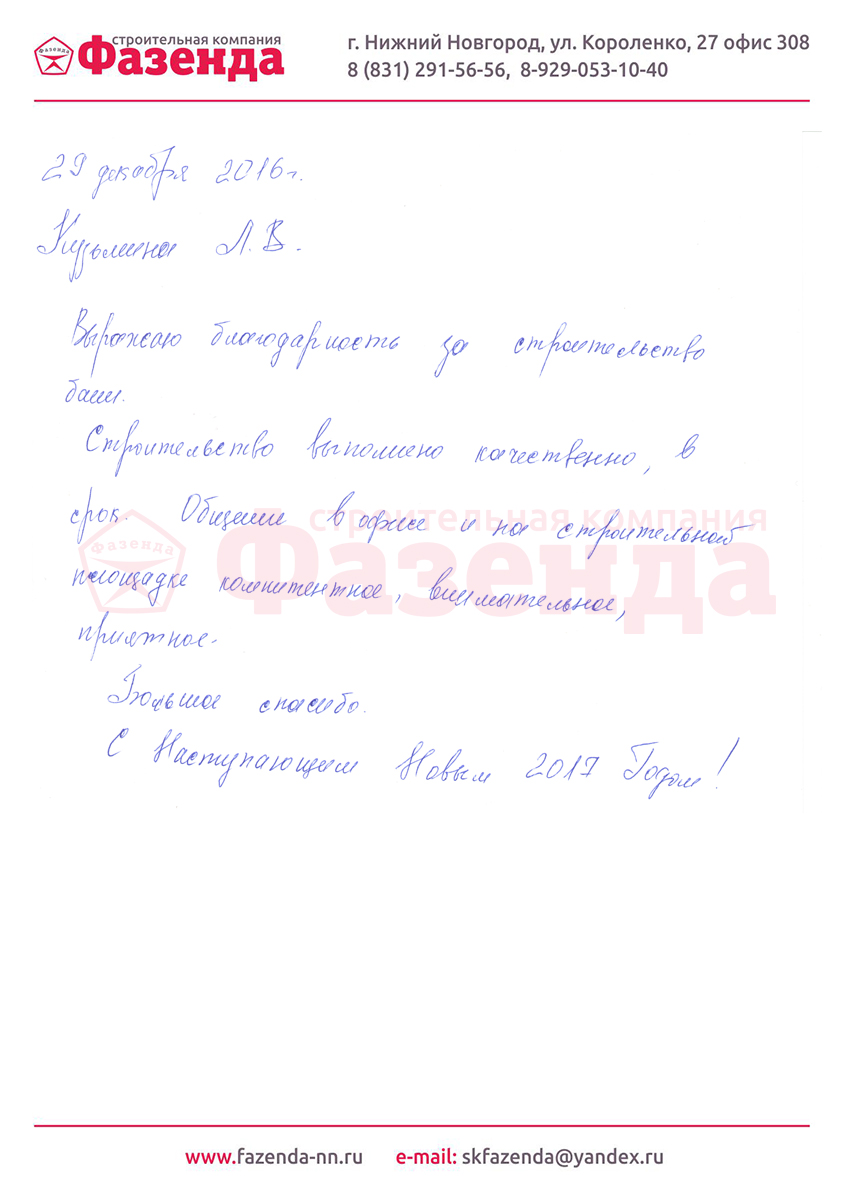 строительная компания
Фазенда
Фазенда
г. Нижний Новгород, ул. Короленко, 27 офис 308
8 (831) 291-56-56, 8-929-053-10-40
29 декабря 2016г.
Кузьмина Л.В.
Выражаю благодарность за строительство
бани.
Строительство выполнено качественно, в
срок. Общение в офисе и на строительной
площадке компитентное, внимательное,
приятное.
Большое спасибо.
С Наступающим Новым 2017 Годом!
строительная компания
Фазенда
Фазенда
www.fazenda-nn.ru e-mail: skfazenda@yandex.ru